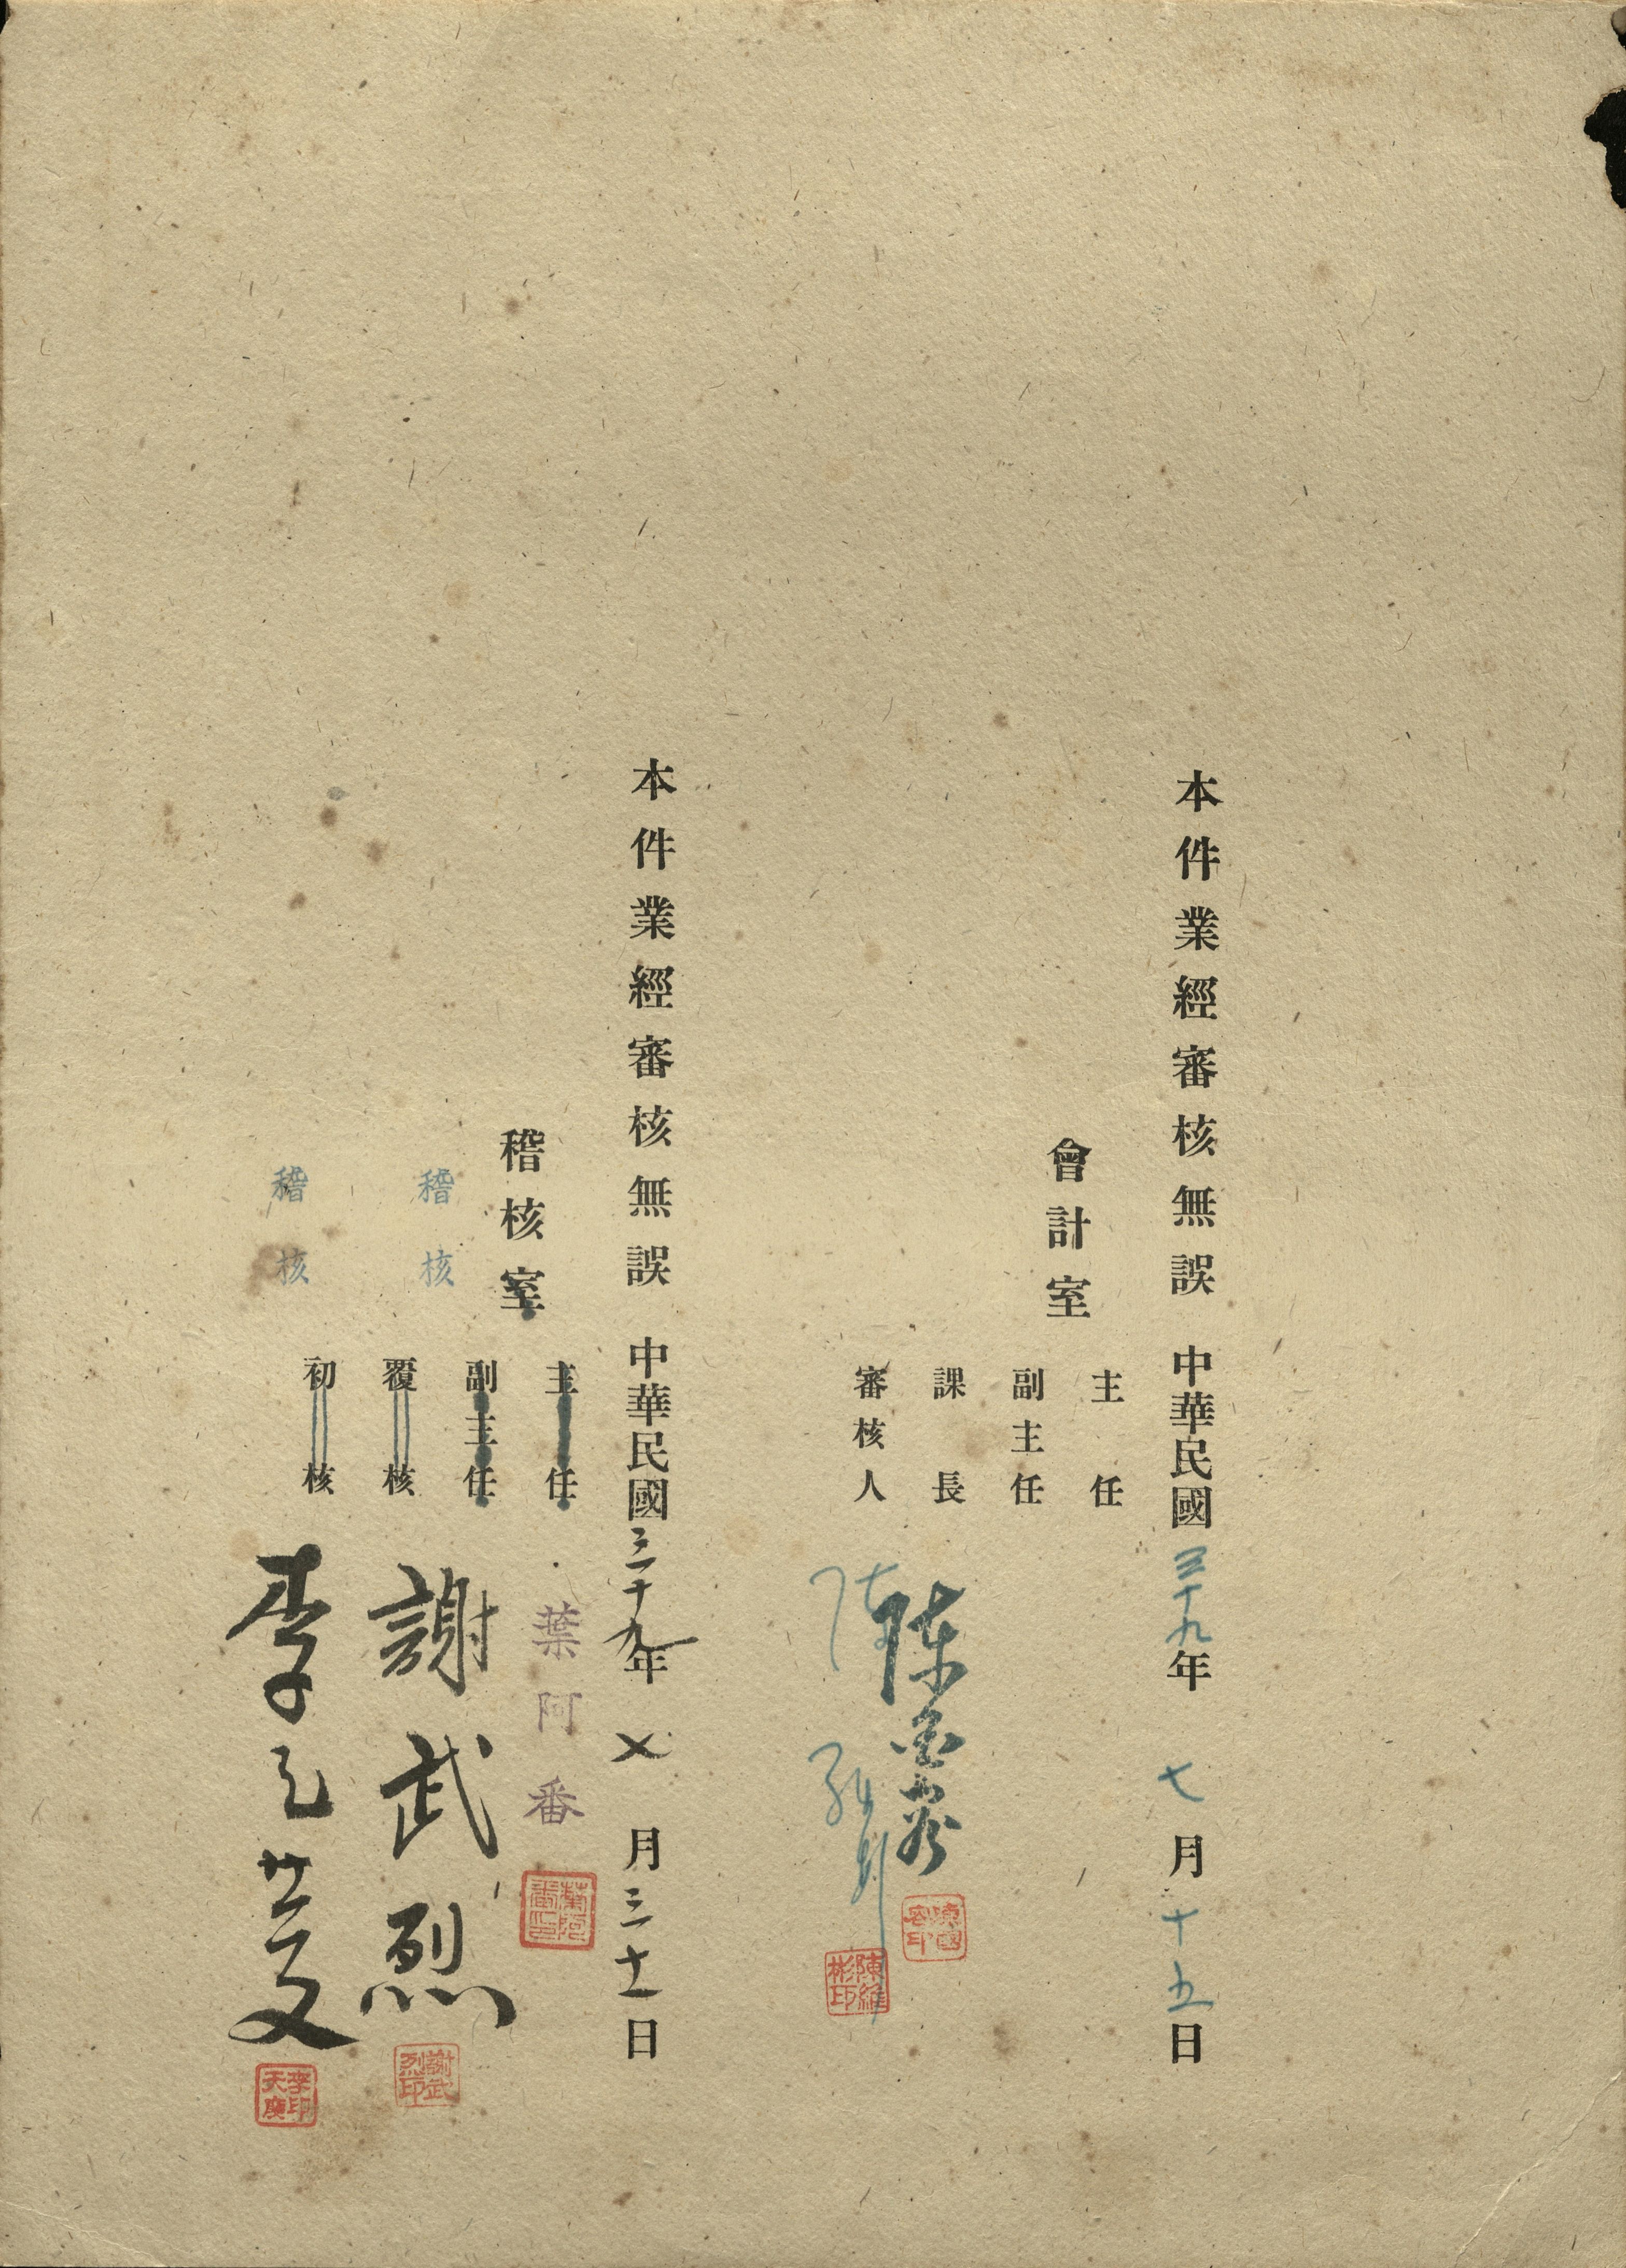 本件業經審核無誤 中華民國三十九年七月十五日
會計室
主任
副主任
課長 陳國容
陳國容印
審核人 陳維彬
陳維彬印
本件業經審核無誤 中華民國三十九年七月三十一日
稽核室
主任 葉阿番
葉阿番印
副主任
稽核
覆核 謝武烈
謝武烈印
稽核
初核 李天慶
李印天慶